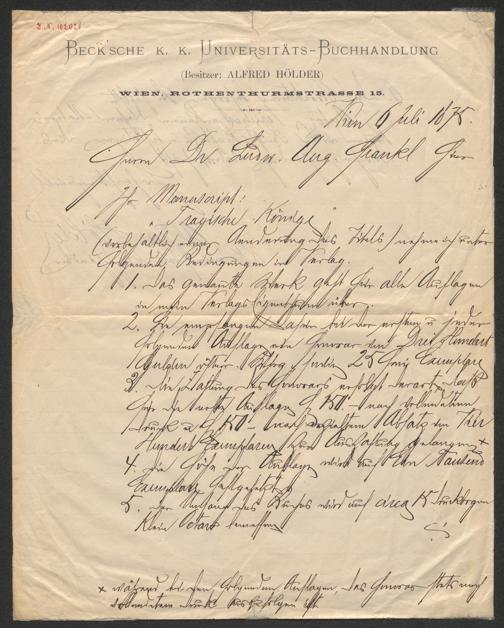 BECK'SCHE K. K. UNIVERSITÄTS-BUCHHANDLUNG
(Besitzer: ALFRED HÖLDER)
WIEN, ROTHENTHURMSTRASSE 15.
Wien 6 Juli 1875.
Herrn Dr Ludw. Aug. Frankl Hier
Ihr Manuscript:
"Tragische Könige"
(vorbehaltlich einer Aenderung des Titels) nehme ich unter
folgenden Bedingungen in Verlag.
1. Das genannte Werk geht für alle Auflagen
in mein Verlags Eigenthum über.
2. Sie empfangen dafür bei der ersten u jeder
folgenden Auflage ein Honorar von Drei Hundert
Gulden österr. Währg, sowie 25 Exemplare
3. Die Zahlung des Honorars erfolgt derart, daß
für die erste Auflage f 150 nach vollendetem
Druck u f 150 nach Absatz von
Hundert Exemplaren zur gelangen +
4. Die Höhe der Auflage wird auf ein Tausend
Exemplare festgesetzt
5. Der Umfang des Buches wird auf circa 15 Druckbogen
Klein Octav bemessen
+ während bei den folgenden Auflagen das Honorar stets nach
vollendetem Druck zu erfolgen ist